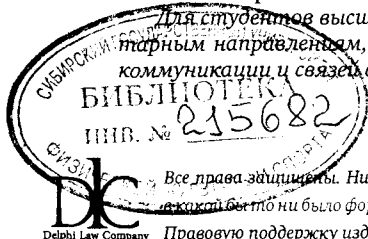 Для студентов высш
тарным направлениям,
коммуникации и связей
СИБИРСКИЙ
БИБЛИОТЕКА
ИНВ. № 215682
Все права защищены. Ни
в какой бы то ни было фор
DLC
Delphi Law Company
Правовую поддержку изд